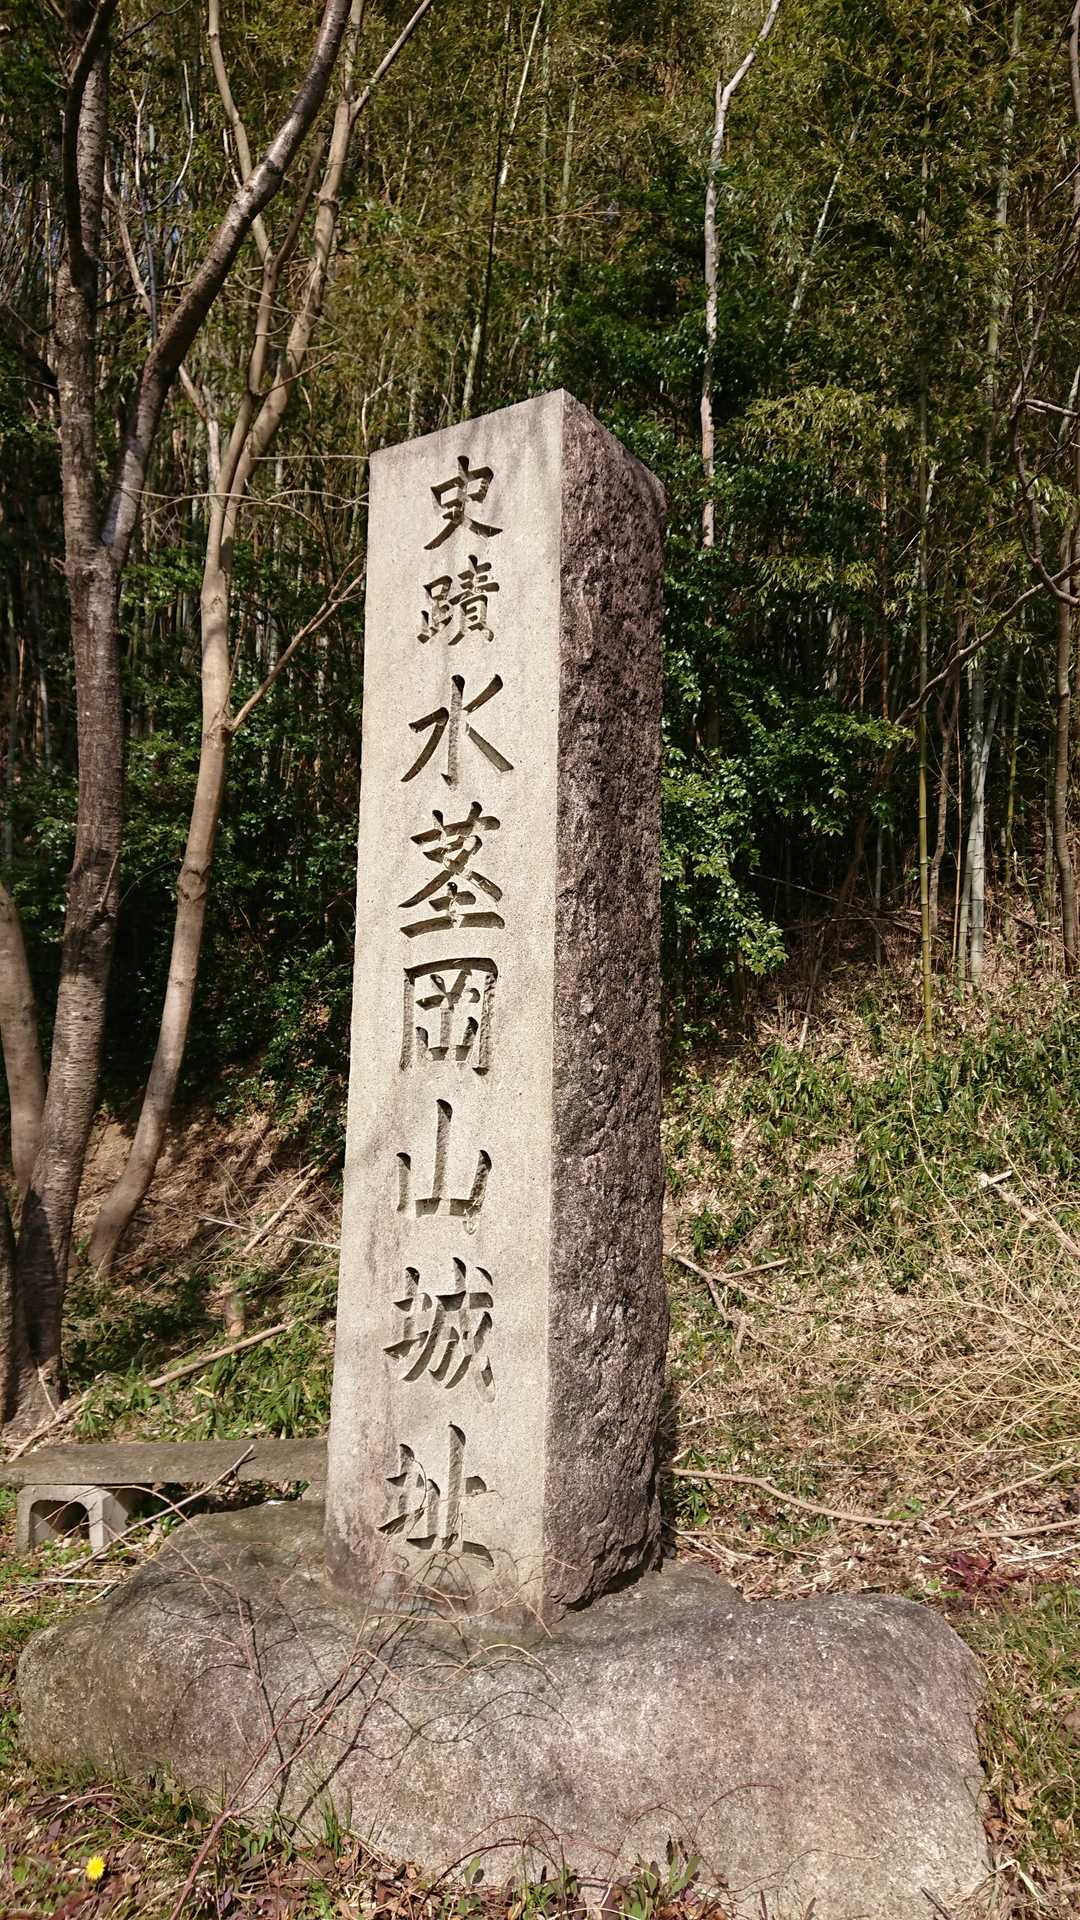 史蹟水茎岡山城址